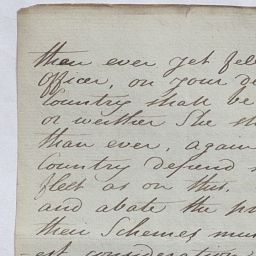 then ever yet fel
officer, on your d
Country shall be
or weither She st
than ever, again
Country defend
fleet as on this.
and abate the pr
their Schemes mu
est consideration